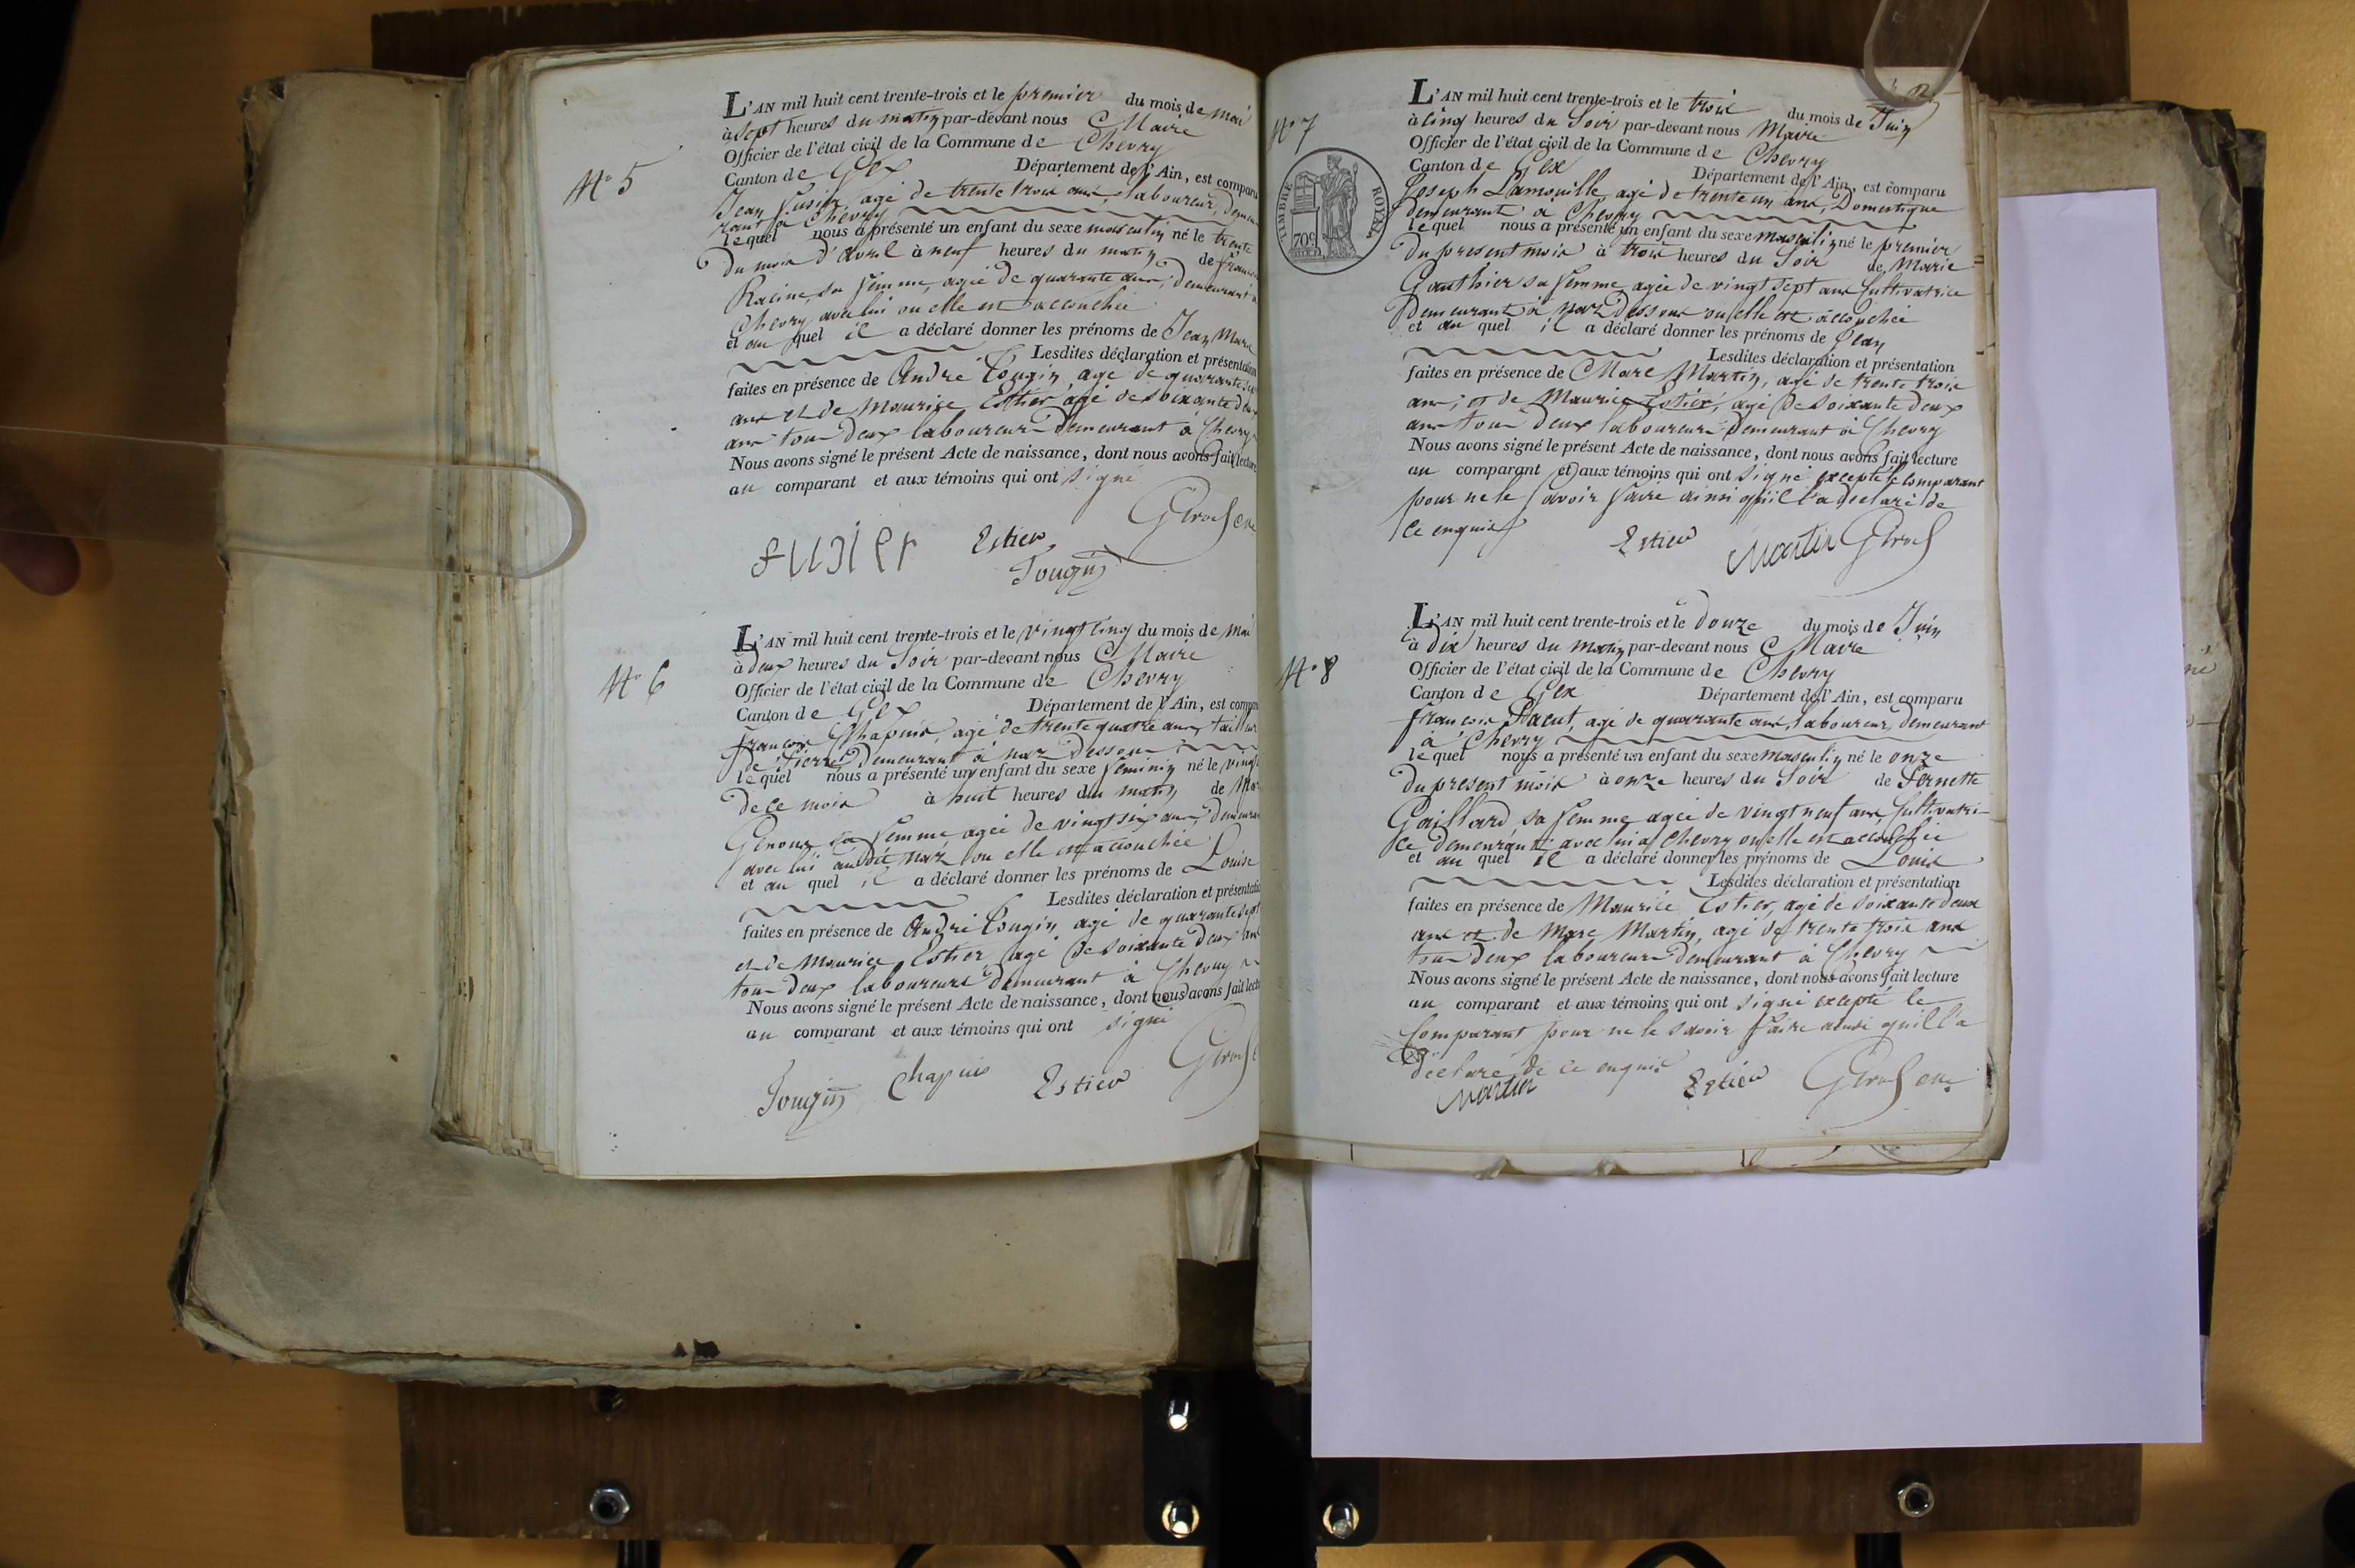 N° 5
L'AN mil huit cent trente-trois et le premier du mois de mai
à sept heures du matin par-devant nous Maire
Officier de l'état civil de la Commune de Chevry
Canton de Gex Département de l'Ain, est comparu
Jean fusier, agé de trente trois ans, laboureur, demeu
rant à Chevry
lequel nous a présenté un enfant du sexe masculin né le trente
du mois d'avril à neuf heures du matin de
Racine, sa femme, agée de quarante ans, demeurant à
Chevry avec lui ou elle est accouchée
et au quel il a déclaré donner les prénoms de Jean Marc
Lesdites déclaration et présentation
faites en présence de André Tougin, agé de quarante sept
ans et de Maurice Estier agé de soixante deux
ans tous deux laboureurs demeurant à Chevry
Nous avons signé le présent Acte de naissance, dont nous avons fait lecture
au comparant et aux témoins qui ont signé
fusier Estier
Tougin
N° 6
L'AN mil huit cent trente-trois et le vingt cinq du mois de mai
à deux heures du Soir par-devant nous Maire
Officier de l'état civil de la Commune de Chevry
Canton de Gex Département de l'Ain, est comparu
françois Chapuis, agé de trente quatre ans, tailleur
de Pierre, Demeurant à naz Dessous
lequel nous a présenté un enfant du sexe féminin né le vingt
de ce mois à huit heures du matin de
Genoux sa femme agée de vingt six ans, demeurant
avec lui audit naz ou elle est accouchée
et au quel il a déclaré donner les prénoms de Louise
Lesdites déclaration et présentation
faites en présence de André Tougin, agé de quarante sept
et de Maurice Estier, agé de soixante deux ans
tous deux laboureurs demeurant à Chevry
Nous avons signé le présent Acte de naissance, dont nous avons fait lecture
au comparant et aux témoins qui ont signé
Tougin Chapuis Estier
N° 7
TIMBRE ROYAL
70c
L'AN mil huit cent trente-trois et le trois du mois de Juin
à cinq heures du Soir par-devant nous Maire
Officier de l'état civil de la Commune de Chevry
Canton de Gex Département de l'Ain, est comparu
Joseph Lamouille agé de trente un ans, Domestique
demeurant à Chevry
lequel nous a présenté un enfant du sexe masculin né le premier
du present mois à trois heures du Soir de Marie
Gauthier sa femme agée de vingt sept ans Cultivatrice
Demeurant à naz Dessous ou elle est accouchée
et au quel il a déclaré donner les prénoms de Jean
Lesdites déclaration et présentation
faites en présence de Marc Martin, agé de trente trois
ans; et de Maurice Estier, agé de soixante deux
ans tous deux laboureurs Demeurant à Chevry
Nous avons signé le présent Acte de naissance, dont nous avons fait lecture
au comparant et aux témoins qui ont signé excepté le comparant
pour ne le savoir faire ainsi qu'il l'a declaré de
ce enquis
Estier Martin
N° 8
L'AN mil huit cent trente-trois et le douze du mois de Juin
à dix heures du matin par-devant nous Maire
Officier de l'état civil de la Commune de Chevry
Canton de Gex Département de l'Ain, est comparu
françois Dacut, agé de quarante ans, laboureur, demeurant
à Chevry
lequel nous a présenté un enfant du sexe masculin né le onze
du present mois à onze heures du Soir de Pernette
Gaillard, sa femme agée de vingt neuf ans Cultivatri-
ce demeurant avec lui à Chevry ou elle est accouchée
et au quel il a déclaré donner les prénoms de Louis
Lesdites déclaration et présentation
faites en présence de Maurice Estier, agé de soixante deux
ans et de Marc Martin, agé de trente trois ans
tous deux laboureurs demeurant à Chevry
Nous avons signé le présent Acte de naissance, dont nous avons fait lecture
au comparant et aux témoins qui ont signé excepté le
Comparant pour ne le savoir faire ainsi qu'il l'a
déclaré de ce enquis
Martin Estier